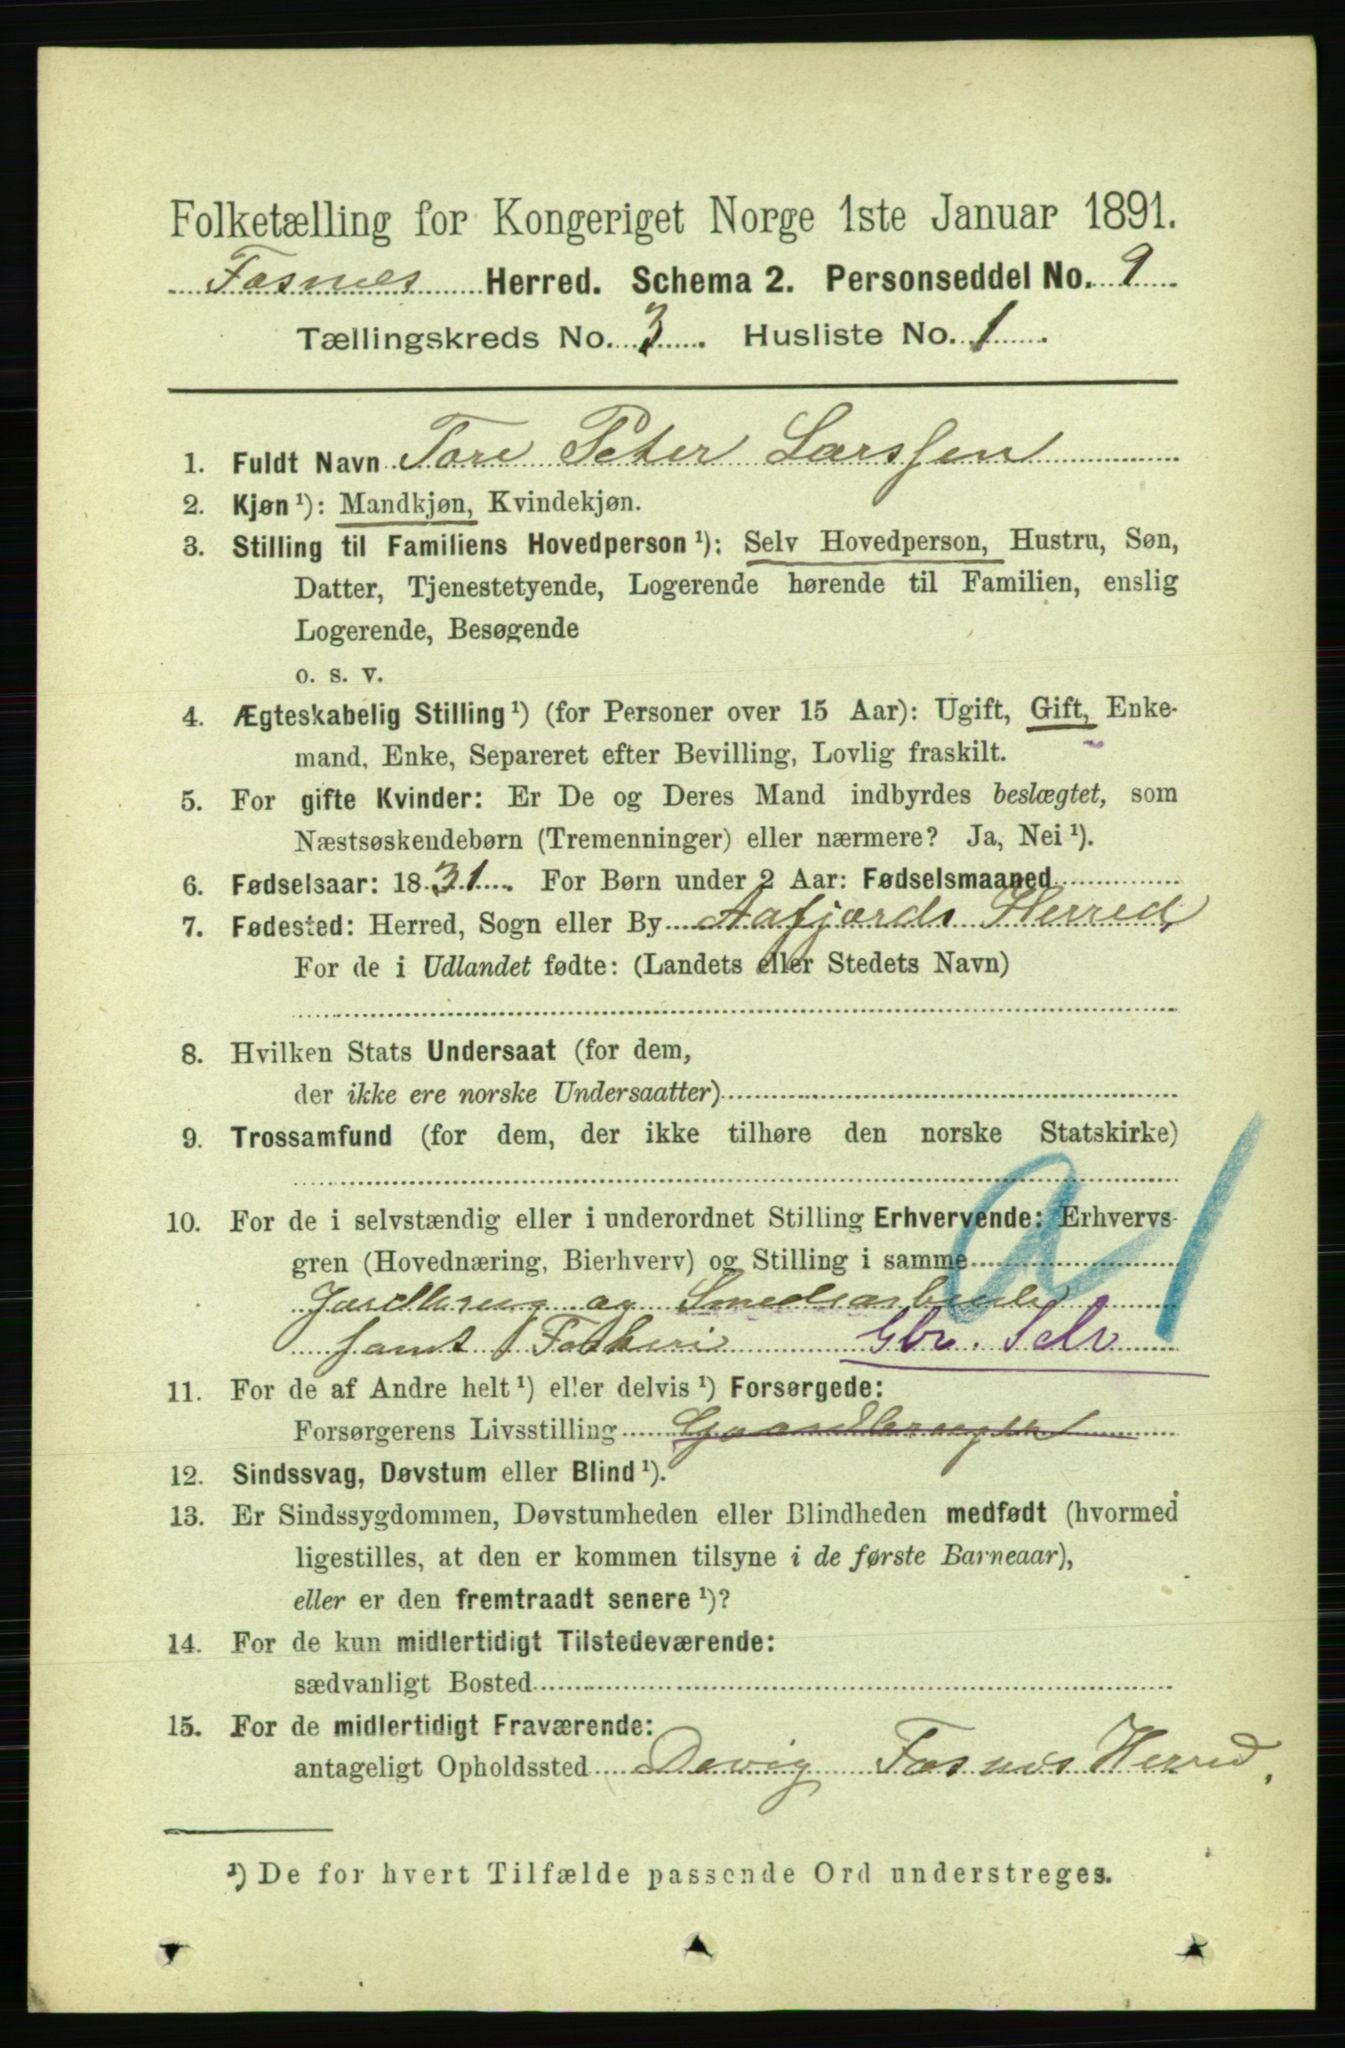 Folketælling for Kongeriget Norge 1ste Januar 1891.
Fosnes Herred. Schema 2. Personseddel No. 9
Tællingskreds No. 3. Husliste No. 1.
1. Fuldt Navn Tore Peter Larssen
2. Kjøn¹): Mandkjøn, Kvindekjøn.
3. Stilling til Familiens Hovedperson¹): Selv Hovedperson, Hustru, Søn,
Datter, Tjenestetyende, Logerende hørende til Familien, enslig
Logerende, Besøgende
o. s. v.
4. Ægteskabelig Stilling¹) (for Personer over 15 Aar): Ugift, Gift, Enke-
mand, Enke, Separeret efter Bevilling, Lovlig fraskilt.
5. For gifte Kvinder: Er De og Deres Mand indbyrdes beslægtet, som
Næstsøskendebørn (Tremenninger) eller nærmere? Ja, Nei¹).
6. Fødselsaar: 1831. For Børn under 2 Aar: Fødselsmaaned
7. Fødested: Herred, Sogn eller By Aafjords Herred
For de i Udlandet fødte: (Landets eller Stedets Navn)
8. Hvilken Stats Undersaat (for dem,
der ikke ere norske Undersaatter)
9. Trossamfund (for dem, der ikke tilhøre den norske Statskirke)
10. For de i selvstændig eller i underordnet Stilling Erhvervende: Erhvervs-
gren (Hovednæring, Bierhverv) og Stilling i samme
Jordbrug og Smedearbeide
samt Fiskeri Gbr. Selv
11. For de af Andre helt¹) eller delvis¹) Forsørgede:
Forsørgerens Livsstilling Gaardbruger
12. Sindssvag, Døvstum eller Blind¹).
13. Er Sindssygdommen, Døvstumheden eller Blindheden medfødt (hvormed
ligestilles, at den er kommen tilsyne i de første Barneaar),
eller er den fremtraadt senere¹)?
14. For de kun midlertidigt Tilstedeværende:
sædvanligt Bosted
15. For de midlertidigt Fraværende:
antageligt Opholdssted Devig Fosnes Herred,
¹) De for hvert Tilfælde passende Ord understreges.